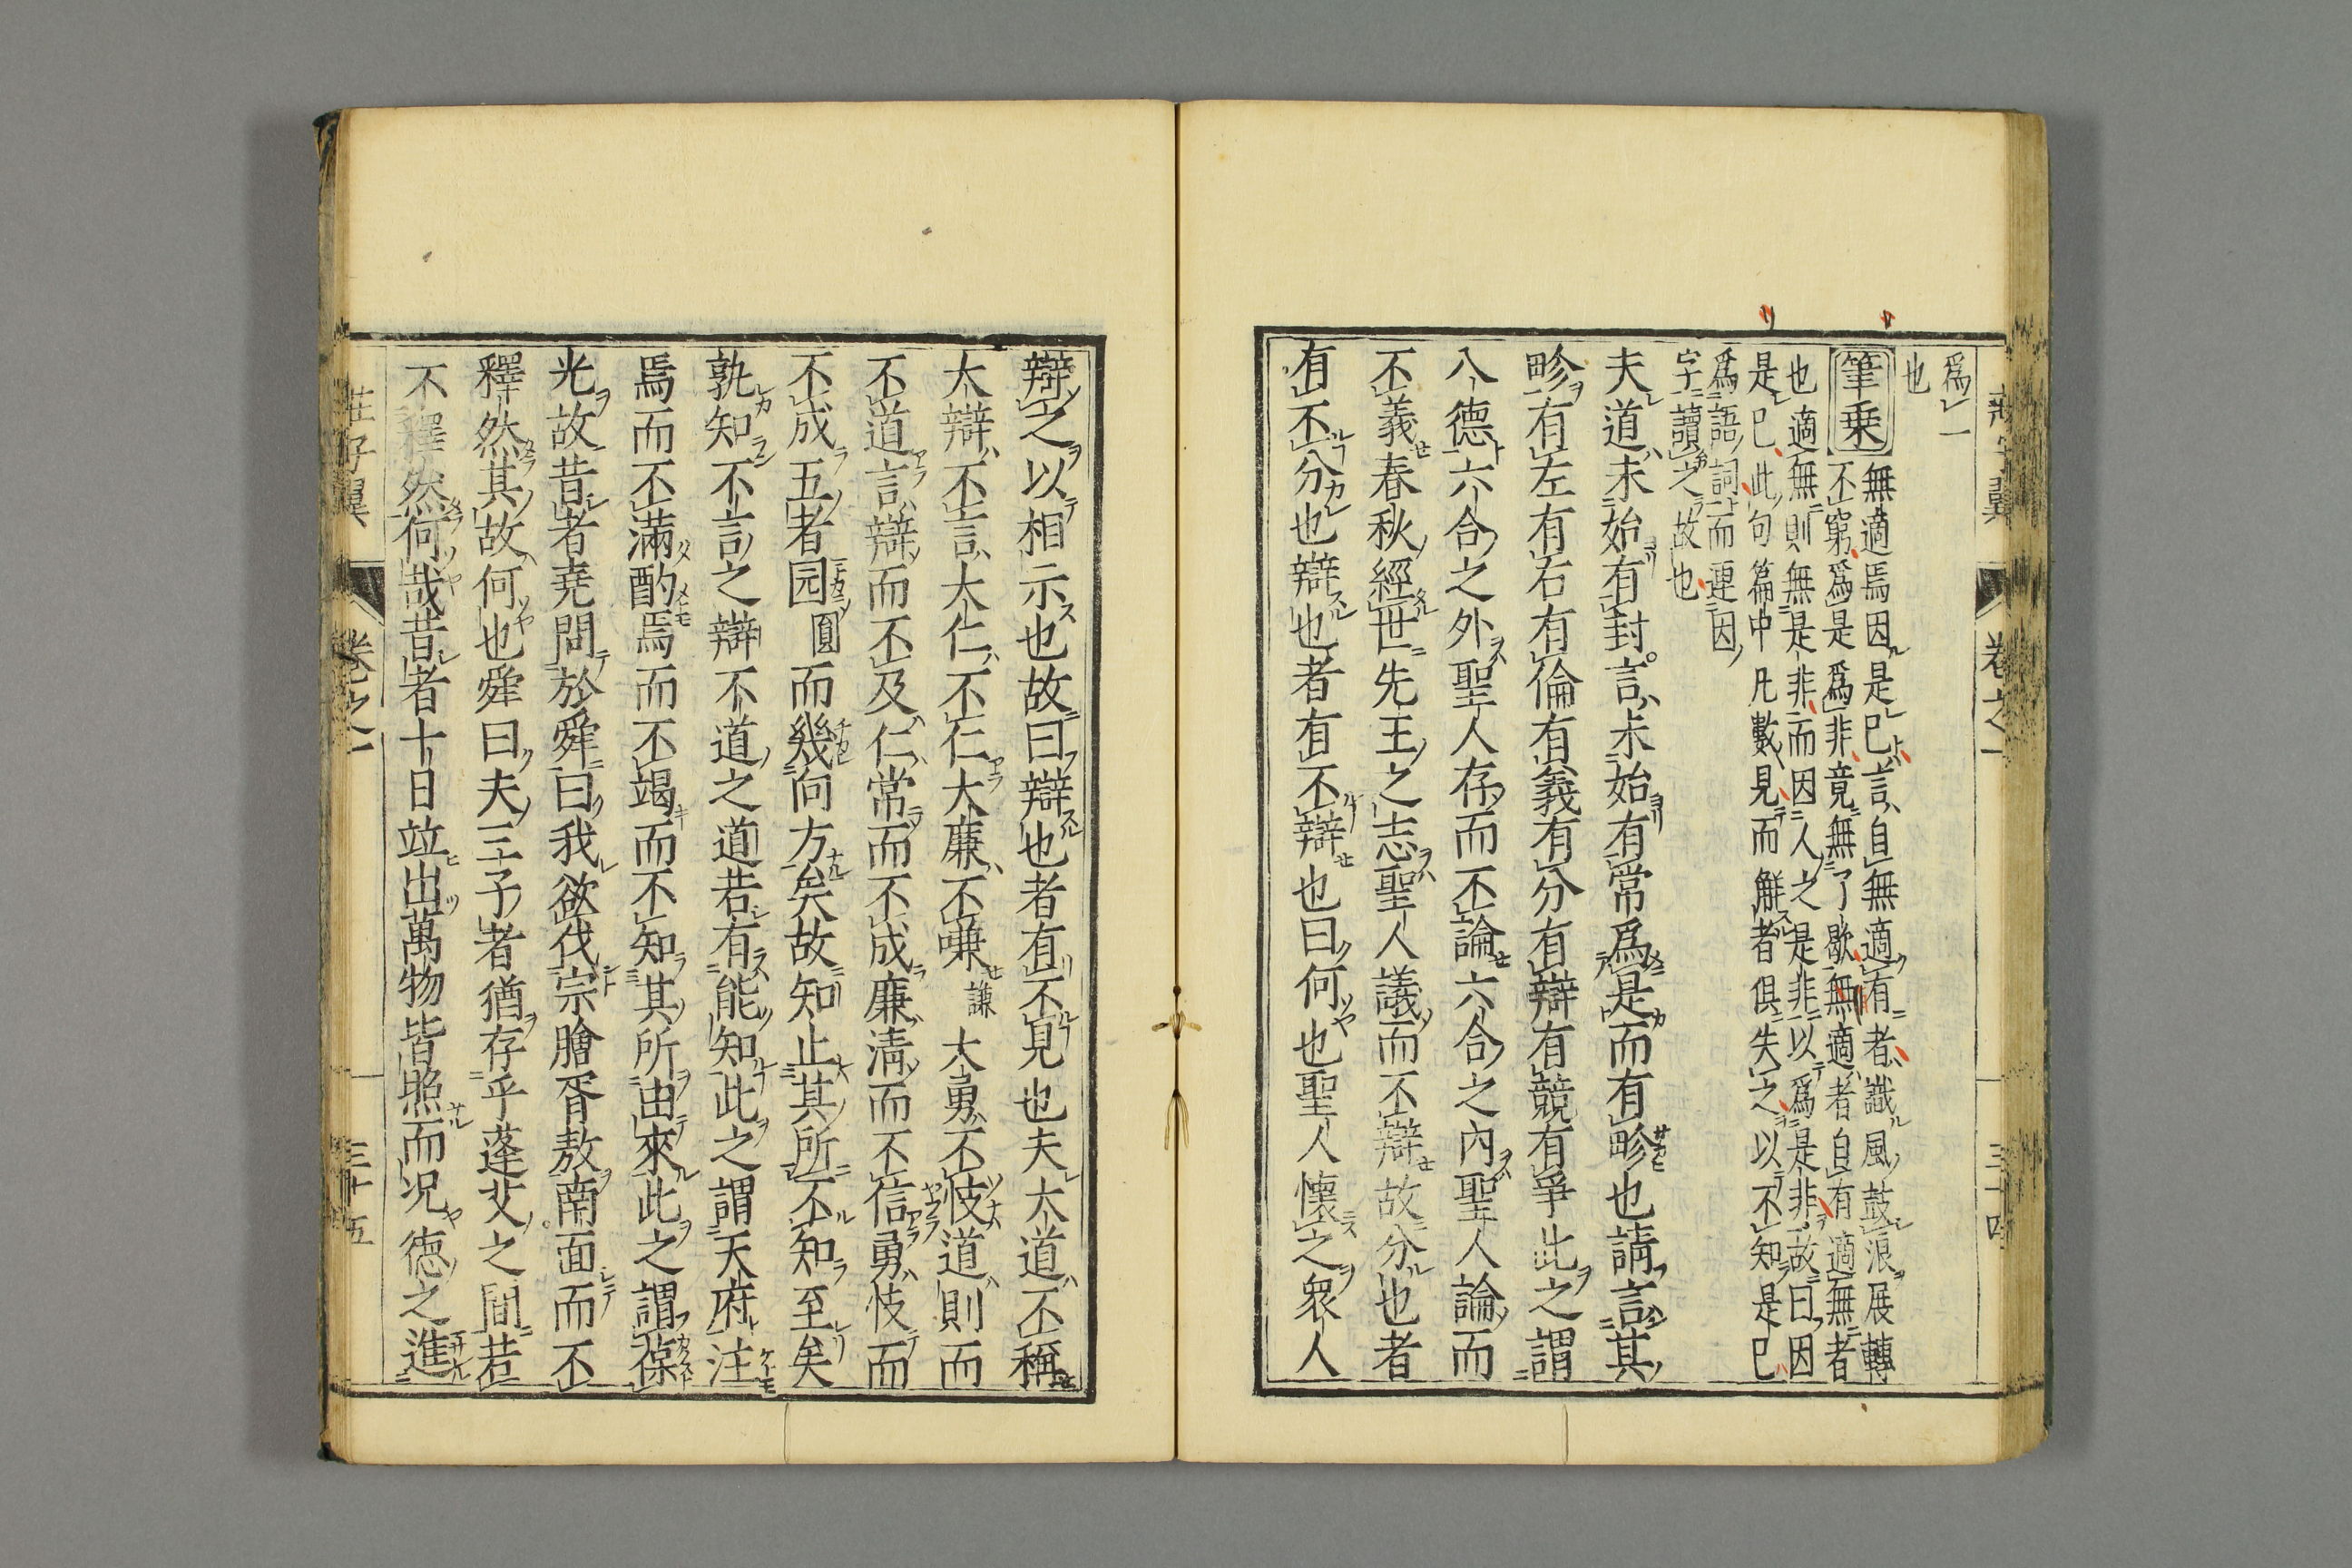 莊子翼 卷之一 三十四
爲一
也
筆乗 無適焉因是巳言自無適有者讖風鼓浪展轉
不窮爲是爲非竟無了歇無適者自有適無者
也適無則無是非而因人之是非以爲是非故曰因
是巳此句篇中凡數見而觧者俱失之以不知是巳
爲語詞而連因
字讀之故也
夫道未始有封言未始有常爲是而有畛也請言其
畛有左有右有倫有義有分有辯有競有爭此之謂
八德六合之外聖人存而不論六合之內聖人論而
不議春秋經世先王之志聖人議而不辯故分也者
有不分也辯也者有不辯也曰何也聖人懷之衆人
辯之以相示也故曰辯也者有不見也夫大道不稱
大辯不言大仁不仁大廉不嗛謙大勇不忮道則而
不道言辯而不及仁常而不成廉淸而不信勇忮而
不成五者园圓而幾向方矣故知止其所不知至矣
孰知不言之辯不道之道若有能知此之謂天府注
焉而不滿酌焉而不竭而不知其所由來此之謂葆
光故昔者堯問於舜曰我欲伐宗膾胥敖南面而不
釋然其故何也舜曰夫三子者猶存乎蓬艾之間若
不釋然何哉昔者十日竝出萬物皆照而况德之進
莊子翼 卷之一 三十五